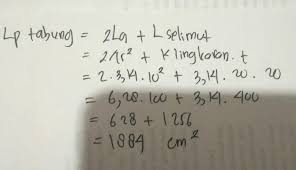 Lp tabung = 2La + L selimut
= 2πr² + K lingkaran . t
= 2 . 3,14 . 10² + 3,14 . 20 . 20
= 6,28 . 100 + 3,14 . 400
= 628 + 1256
= 1884 cm²